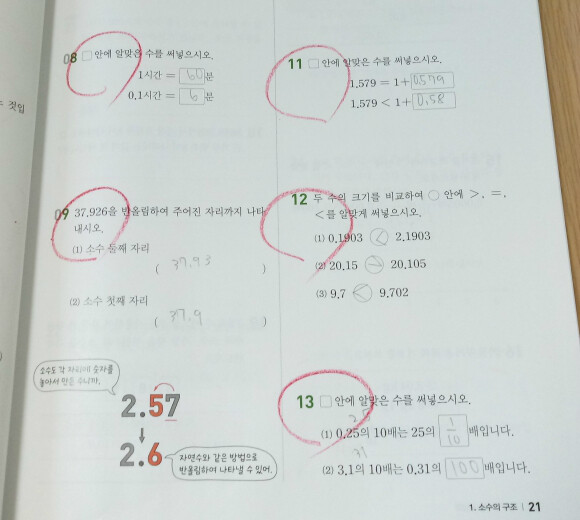 08 □ 안에 알맞은 수를 써넣으시오.
1시간 = 60 분
0.1시간 = 6 분
09 37.926을 반올림하여 주어진 자리까지 나타
내시오.
(1) 소수 둘째 자리
( 37.93 )
(2) 소수 첫째 자리
( 37.9 )
소수도 각 자리에 숫자를
놓아서 만든 수니까.
2.57
2.6
자연수와 같은 방법으로
반올림하여 나타낼 수 있어.
11 □ 안에 알맞은 수를 써넣으시오.
1.579 = 1+ 0.579
1.579 < 1+ 0.58
12 두 수의 크기를 비교하여 ○ 안에 >, =,
<를 알맞게 써넣으시오.
(1) 0.1903 < 2.1903
(2) 20.15 > 20.105
(3) 9.7 < 9.702
13 □ 안에 알맞은 수를 써넣으시오.
2.5
(1) 0.25의 10배는 25의 1/10 배입니다.
31
(2) 3.1의 10배는 0.31의 100 배입니다.
1. 소수의 구조 21